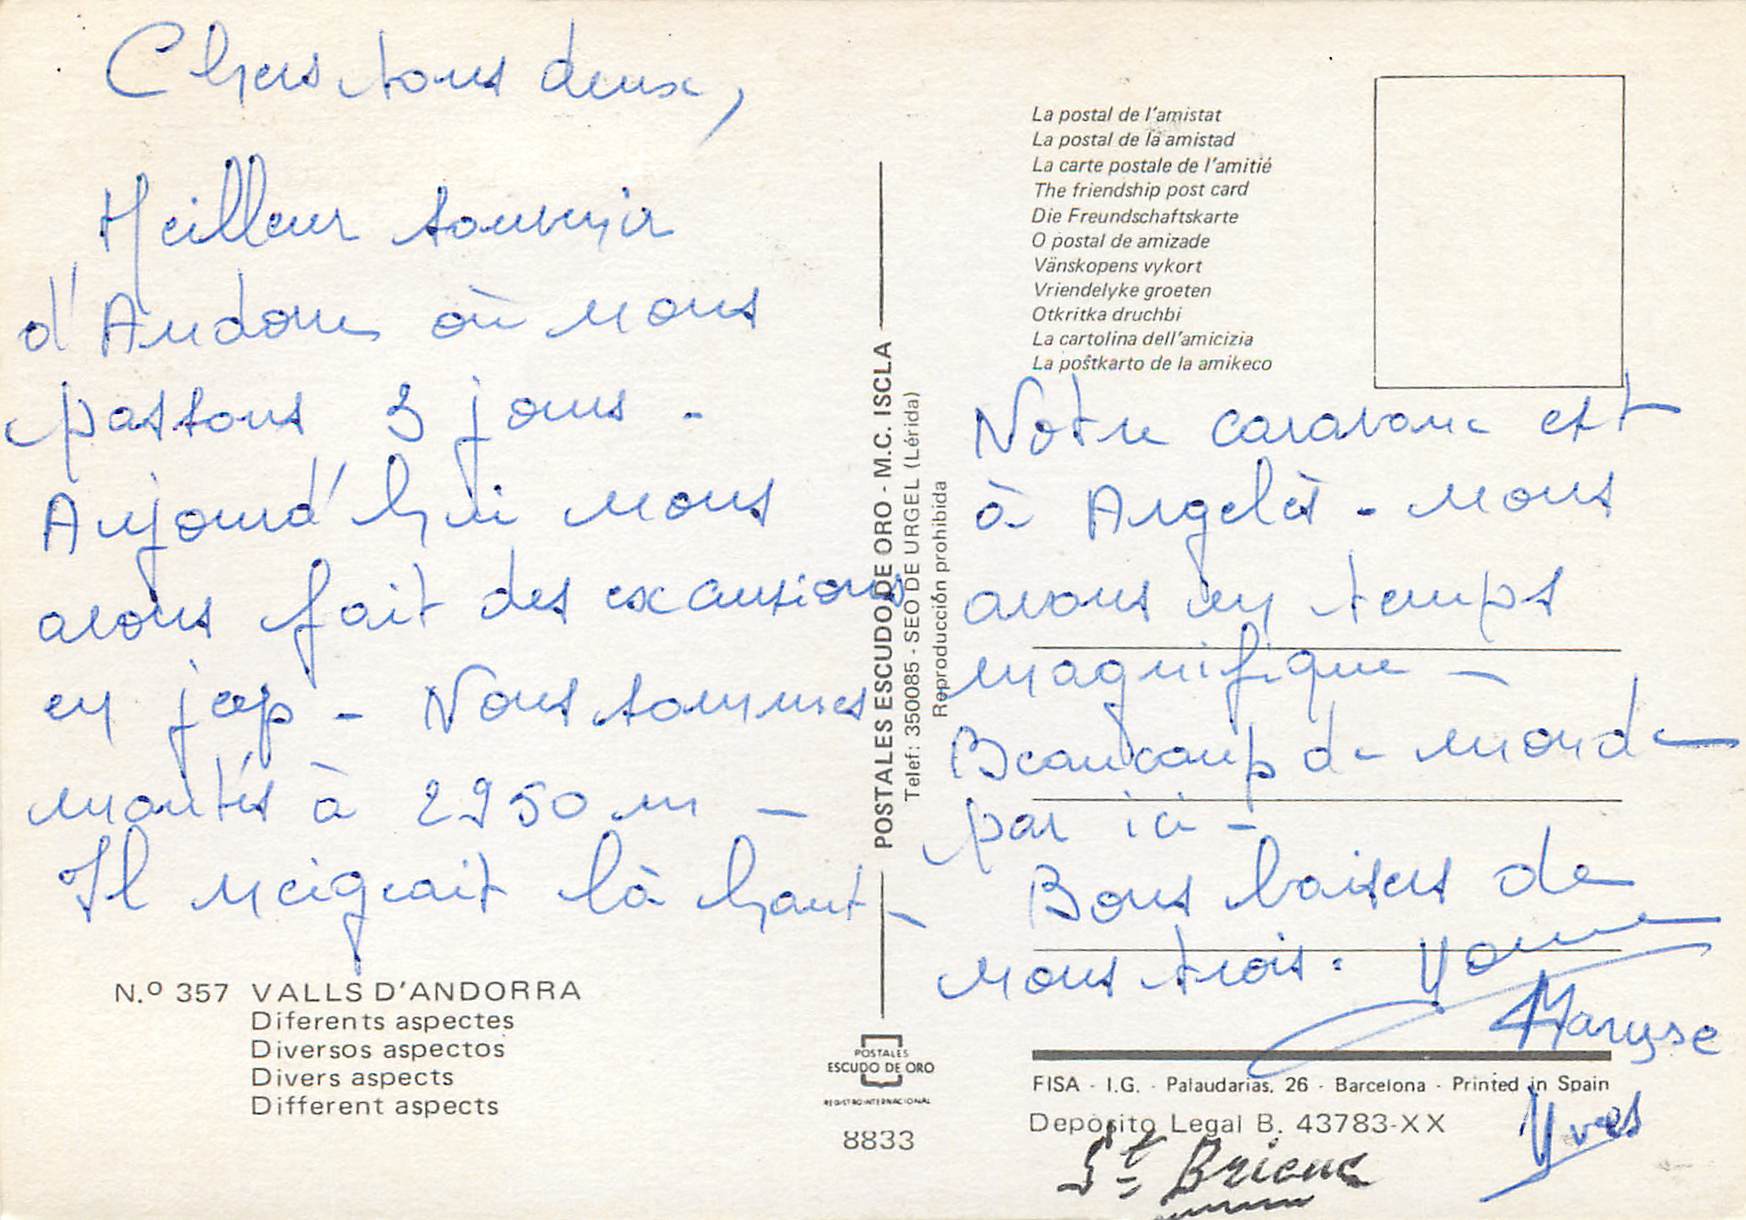 Chers tous deux,
Meilleur souvenir
d'Andorre où nous
passons 3 jours -
Aujourd'hui nous
avons fait des excursions
en jeep - Nous sommes
montés à 2950 m -
Il neigeait là haut -
N.º 357 VALLS D'ANDORRA
Diferents aspectes
Diversos aspectos
Divers aspects
Different aspects
POSTALES ESCUDO DE ORO - M.C. ISCLA
Telef: 350085 - SEO DE URGEL (Lérida)
Reproducción prohibida
POSTALES
ESCUDO DE ORO
REGISTRO INTERNACIONAL
8833
La postal de l'amistat
La postal de la amistad
La carte postale de l'amitié
The friendship post card
Die Freundschaftskarte
O postal de amizade
Vänskopens vykort
Vriendelyke groeten
Otkritka druchbi
La cartolina dell'amicizia
La poŝtkarto de la amikeco
Notre caravane est
à Argelès - nous
avons un temps
magnifique -
Beaucoup de monde
par ici -
Bons baisers de
nous trois : Yvonne
Maryse
FISA - I.G. - Palaudarias, 26 - Barcelona - Printed in Spain
Depósito Legal B. 43783-XX
Yves
St Brieuc